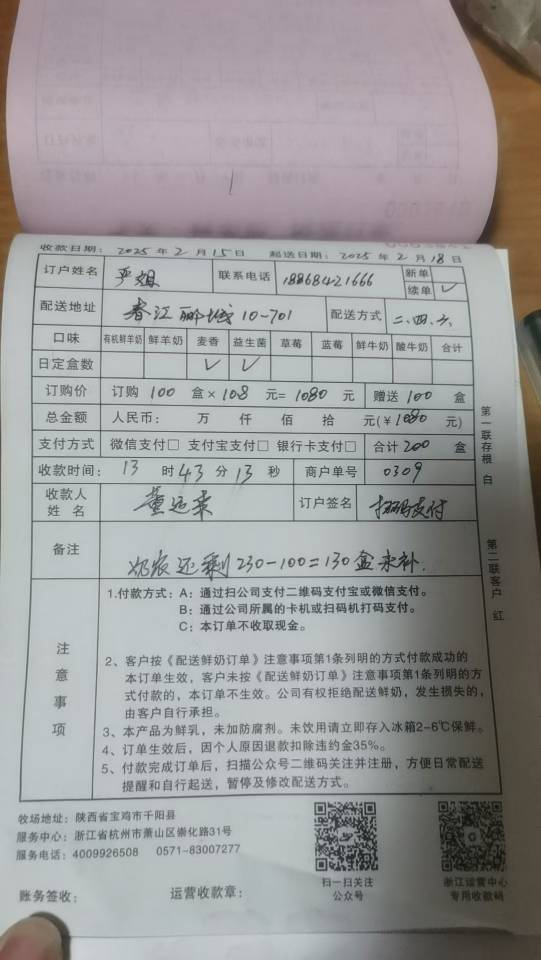 收款日期: 2025 年 2 月 15 日 起送日期: 2025 年 2 月 18 日
订户姓名 严姐 联系电话 18868421666 新单
续单 ✓
配送地址 春江郦城10-701 配送方式 二.四.六
口味 有机鲜羊奶 鲜羊奶 麦香 益生菌 草莓 蓝莓 鲜牛奶 酸牛奶 合计
日定盒数 ✓ ✓
订购价 订购 100 盒× 108 元= 1080 元 赠送 100 盒
总金额 人民币: 万 仟 佰 拾 元(￥1080 元)
支付方式 微信支付□ 支付宝支付□ 银行卡支付□ 合计 200 盒
收款时间: 13 时 43 分 13 秒 商户单号 0309
收款人姓名 董运来 订户签名 扫码支付
备注 奶灰还剩230-100=130盒未补.
第一联存根 白
第二联客户 红
注意事项
1.付款方式: A: 通过扫公司支付二维码支付宝或微信支付。
B: 通过公司所属的卡机或扫码机打码支付。
C: 本订单不收取现金。
2、客户按《配送鲜奶订单》注意事项第1条列明的方式付款成功的
本订单生效，客户未按《配送鲜奶订单》注意事项第1条列明的方
式付款的，本订单不生效。公司有权拒绝配送鲜奶，发生损失的，
由客户自行承担。
3、本产品为鲜乳，未加防腐剂。未饮用请立即存入冰箱2-6℃保鲜。
4、订单生效后，因个人原因退款扣除违约金35%。
5、付款完成订单后，扫描公众号二维码关注并注册，方便日常配送
提醒和自行起送，暂停及修改配送方式。
牧场地址: 陕西省宝鸡市千阳县
服务中心: 浙江省杭州市萧山区崇化路31号
服务电话: 4009926508 0571-83007277
扫一扫关注
公众号
浙江运营中心
专用收款码
账务签收: 运营收款章: